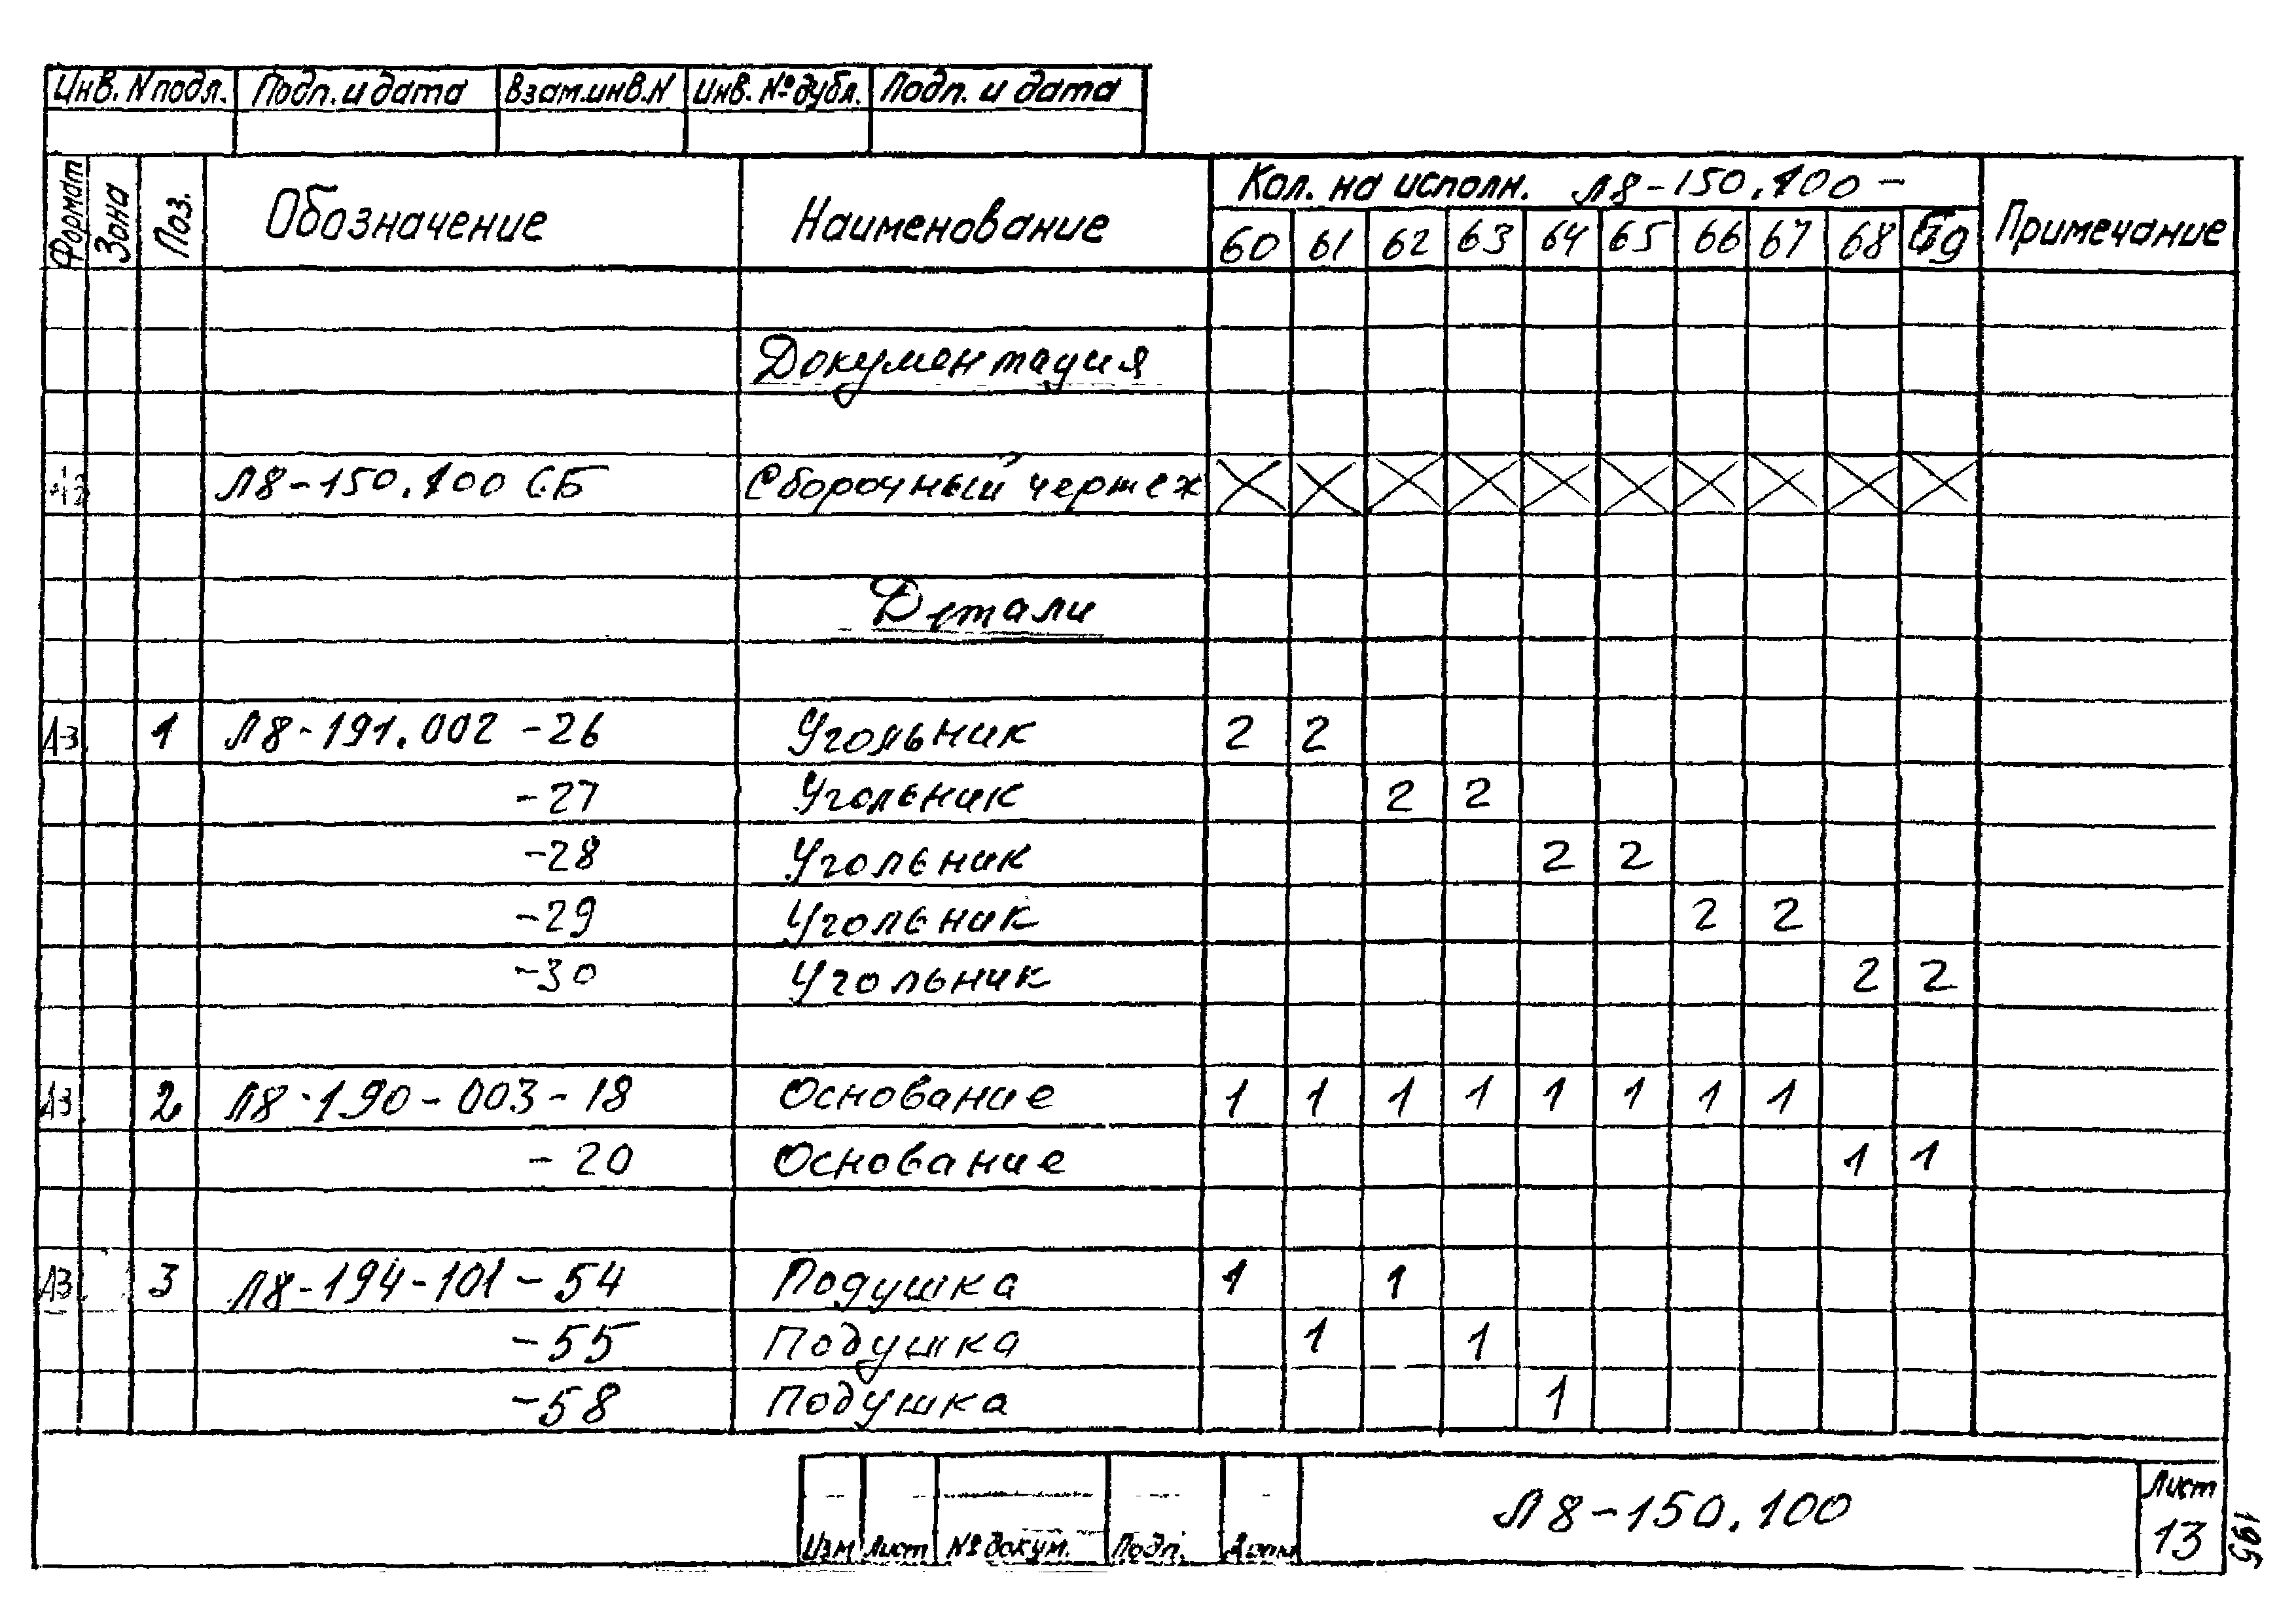 Инв. N подл. Подп. и дата Взам.инв.N Инв. № дубл. Подп. и дата
Формат Зона Поз. Обозначение Наименование Кол. на исполн. Л8-150.100- Примечание
60 61 62 63 64 65 66 67 68 69
Документация
Л8-150.100 СБ Сборочный чертеж X X X X X X X X X X
Детали
А3 1 Л8-191.002 -26 Угольник 2 2
-27 Угольник 2 2
-28 Угольник 2 2
-29 Угольник 2 2
-30 Угольник 2 2
А3 2 Л8-190-003-18 Основание 1 1 1 1 1 1 1 1
-20 Основание 1 1
А3 3 Л8-194-101-54 Подушка 1 1
-55 Подушка 1 1
-58 Подушка 1
Изм Лист № докум. Подп. Дата Л8-150.100 Лист
13
195